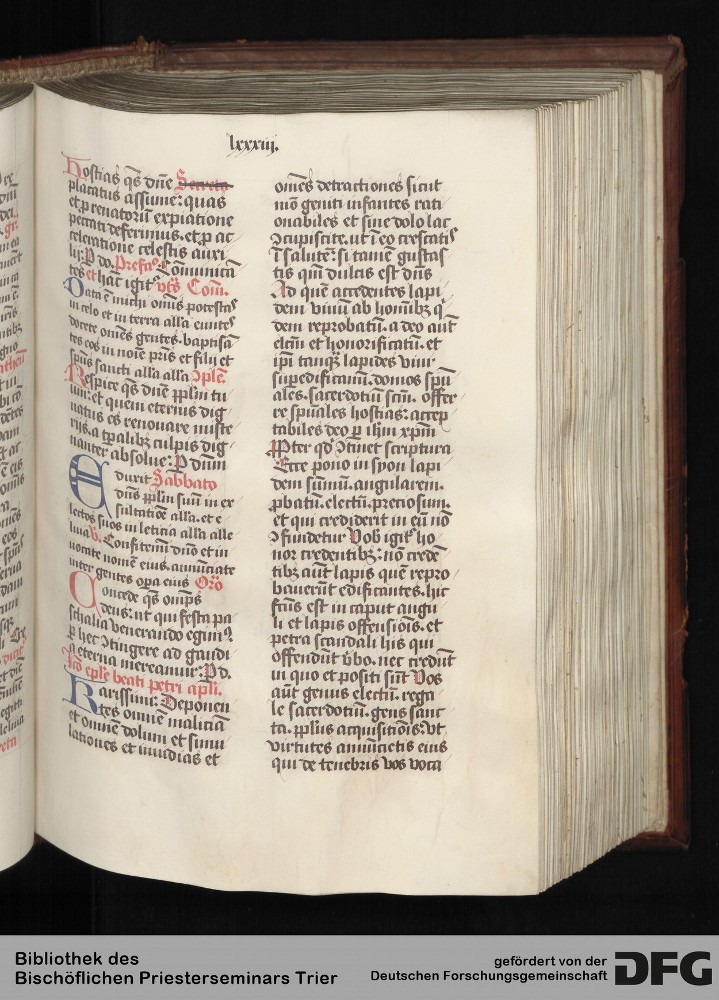 lxxxiij.
Hostias qs dne Secreta
placatus assume: quas
et p renatorū expiatione
peccati deferimus. et p ac
celeratione celestis auxi
lij: P do. Prefaº Cōmunicā
tes et hāc igit vts Com̄.
Data ē michi omīs potestas
in celo et in terra alla eunte
docete omēs gentes. baptisā
tes eos in noīe pris et filij et
spūs sancti alla alla Cple.
Respice qs dne pplm tu
um: et quem eternis dig
natus es renouare miste
rijs. a tpalibꝫ culpis dig
nanter absolue: P dnm
Eduxit Sabbato
dns pplm suū in ex
sultatiōe alla. et e
lectos suos in leticia alla alle
luia v̄. Confitemī dno et in
uocate nomē eius. annūciate
inter gentes opa eius Orō
Concede qs omps
deus: ut qui festa pa
schalia venerando egimꝰ
p hec ꝯtingere ad gaudi
a eterna mereamur: P d.
Ad eple beati petri apli.
Karissimi: Deponen
tes omnem maliciā
et omnē dolum et simu
lationes et inuidias et
omēs detractiones sicut
mō geniti infantes rati
onabiles et sine dolo lac
ꝯcupiscite. ut ī eo crescatis
ī salutē: si tamen gustas
tis qm dulcis est dns
Ad quē accedentes lapi
dem viuū ab homībꝫ q
dem reprobatū. a deo aut
electū et honorificatū. et
ipī tanqꝫ lapides viui
supedificamī. domos spū
ales. sacerdotiū scm̄. offer
re spūales hostias: accep
tabiles deo p ihm xpm
Pter qd ꝯtinet scriptura
Ecce pono in syon lapi
dem sūmū. angularem.
pbatū. electū. preciosum.
et qui crediderit in eū nō
ꝯfundetur Vob igit ho
nor credentibꝫ: nō credē
tibꝫ aūt lapis quē repro
bauerūt edificantes. hic
factus est in caput angu
li et lapis offensiois. et
petra scandali hijs qui
offendūt vbo. nec credūt
in quo et positi sūt Vos
aūt genus electū. rega
le sacerdotiū. gens sanc
ta. pplus acquisitiois: vt
virtutes annūcietis eius
qui de tenebris vos voca
Bibliothek des
Bischöflichen Priesterseminars Trier
gefördert von der
Deutschen Forschungsgemeinschaft
DFG